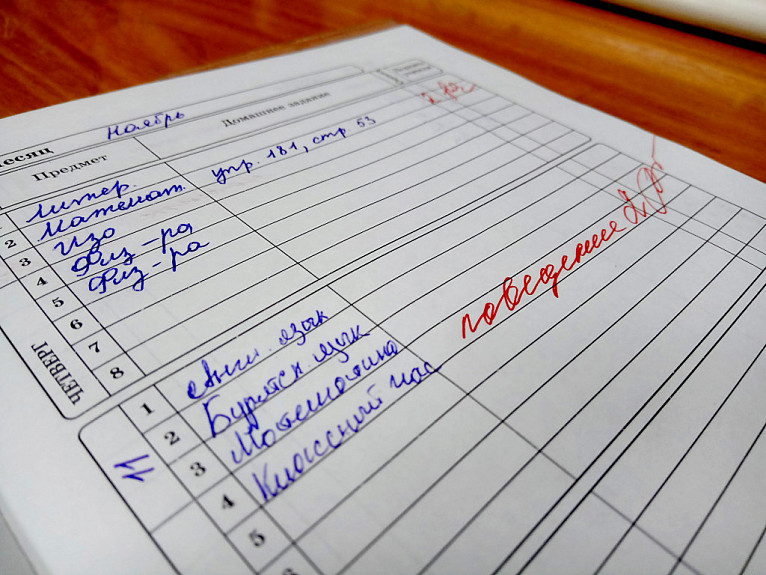 месяц ноябрь
Предмет Домашнее задание
1 Литер. упр. 181, стр 53 2
2 Математ.
3 Изо
4 Физ-ра
5 Физ-ра
6
7
8
ЧЕТВЕРГ
11
1 Англ. язык
2 Бурятск. язык поведение 2
3 Математика
4 Классный час
5
6